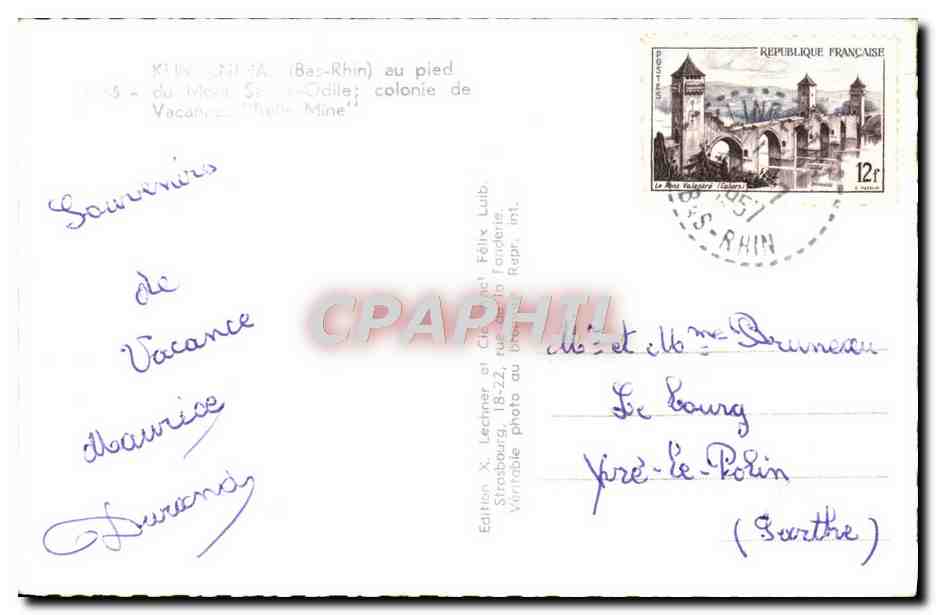 (Bas-Rhin) au pied
du Mont Sainte-Odile; colonie de
Vacances "Belle Mine"
Souvenirs
de
Vacance
Maurice
Durand
Edition X. Lechner et Cie Félix Luib.
Strasbourg, 18-22, rue de la Fonderie.
Véritable photo au bromure Repr. int.
CPAPHIL
REPUBLIQUE FRANÇAISE
POSTES
Le Pont Valentré (Cahors)
12f
1957
BAS-RHIN
Mr et Mme Bruneau
Le bourg
Yvré-le-Polin
(Sarthe)